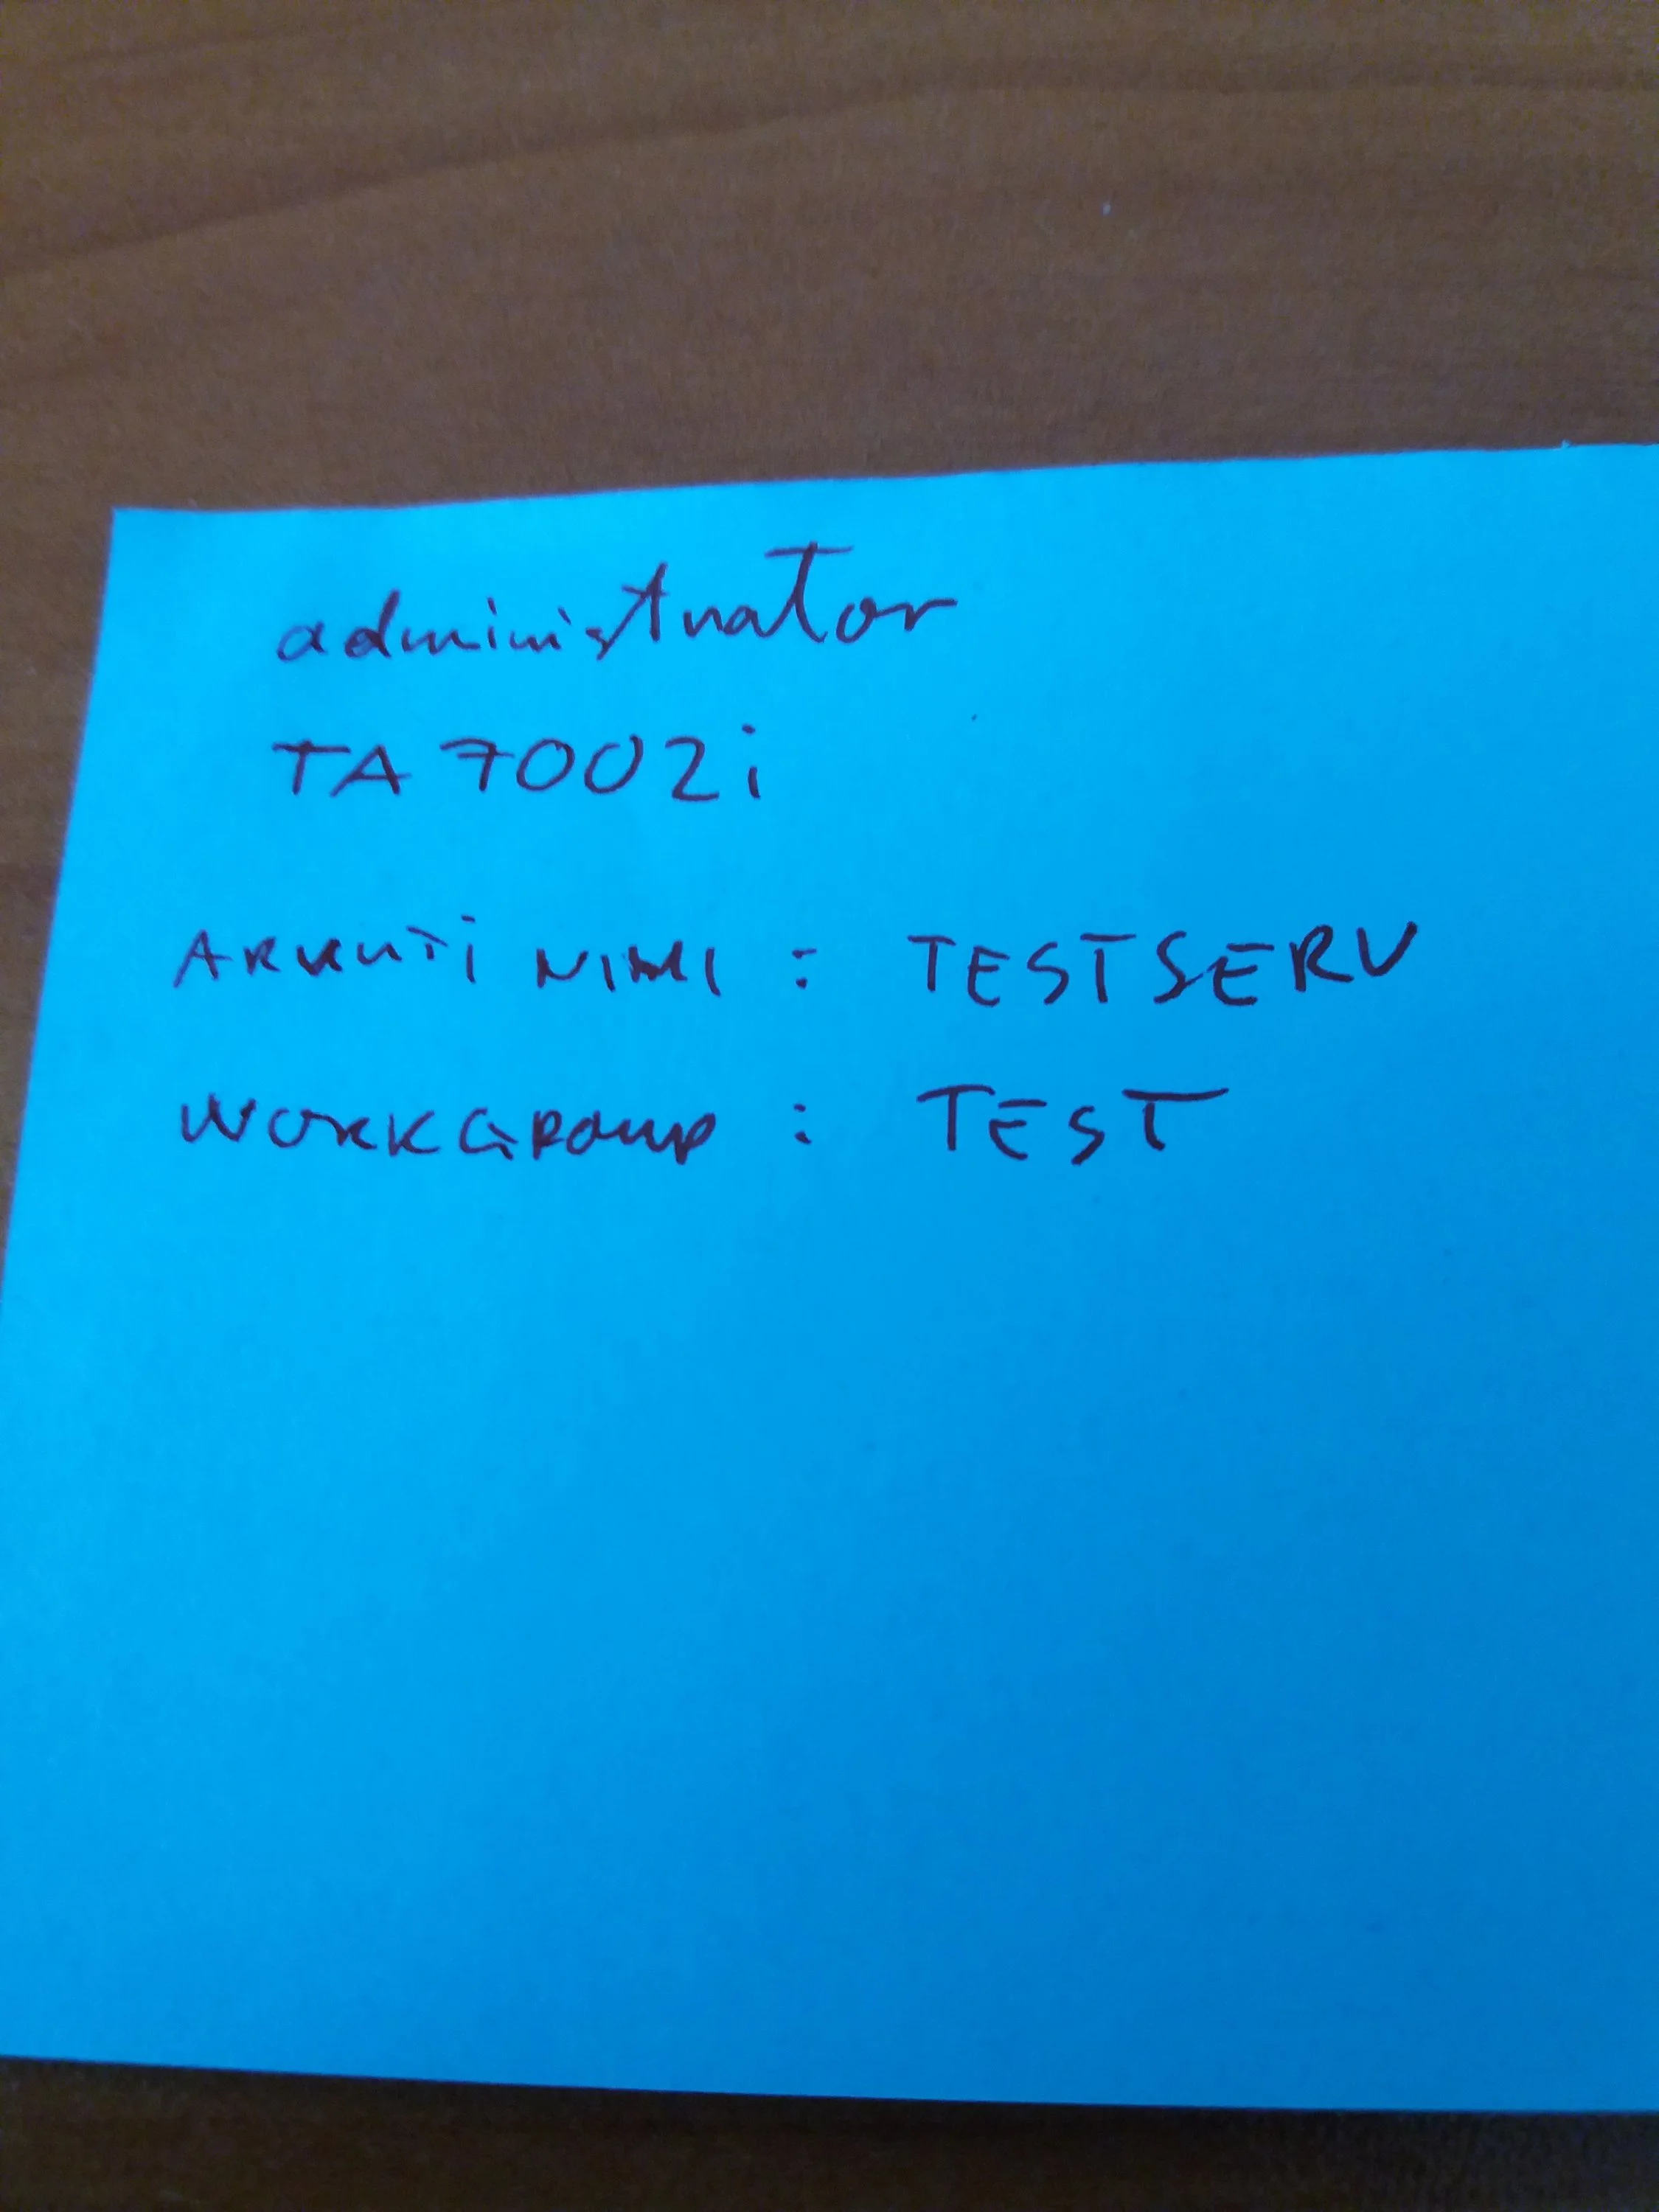 administrator
TA 7002i
ARVUTI NIMI : TESTSERV
WORKGROUP : TEST